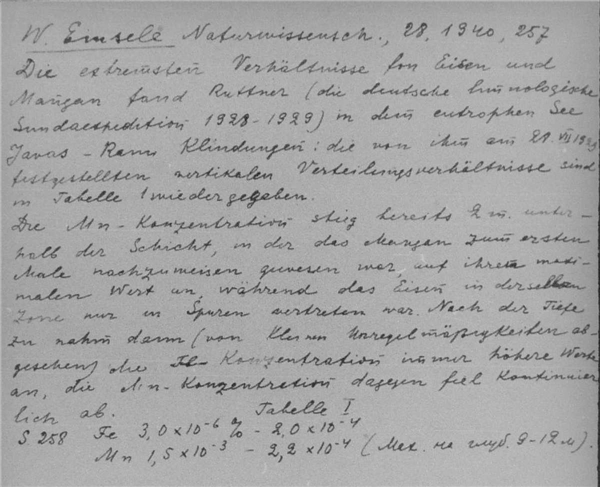 W. Einsele Naturwissensch., 28, 1940, 257
Die extremsten Verhältnisse fon Eisen und
Mangan fand Ruttner (die deutsche limnologische
Sundaexpedition 1928-1929) in dem eutrophen See
Javas - Ranu Klindungen: die von ihm am 21
festgestellten vertikalen Verteilungsverhältnisse sind
in Tabelle 1 wiedergegeben.
Die Mn-Konzentration stieg bereits 2 m. unter-
halb der Schicht, in der das Mangan zum ersten
Male nachzuweisen gewesen war, auf ihrem maxi-
malen Wert an, während das Eisen in derselben
Zone nur in Spuren vertreten war. Nach der Tiefe
zu nahm dann (von kleinen Unregelmäßigkeiten ab-
gesehen) die Konzentration immer höhere Werte
an, die Mn-Konzentration dagegen fiel kontinuier
lich ab. Tabelle I
S 258 Fe 3,0 x 10⁻⁶ % - 2,0 x 10⁻⁴
Mn 1,5 x 10⁻³ - 2,2 x 10⁻⁴ (Мах. на глуб. 9-12 м).